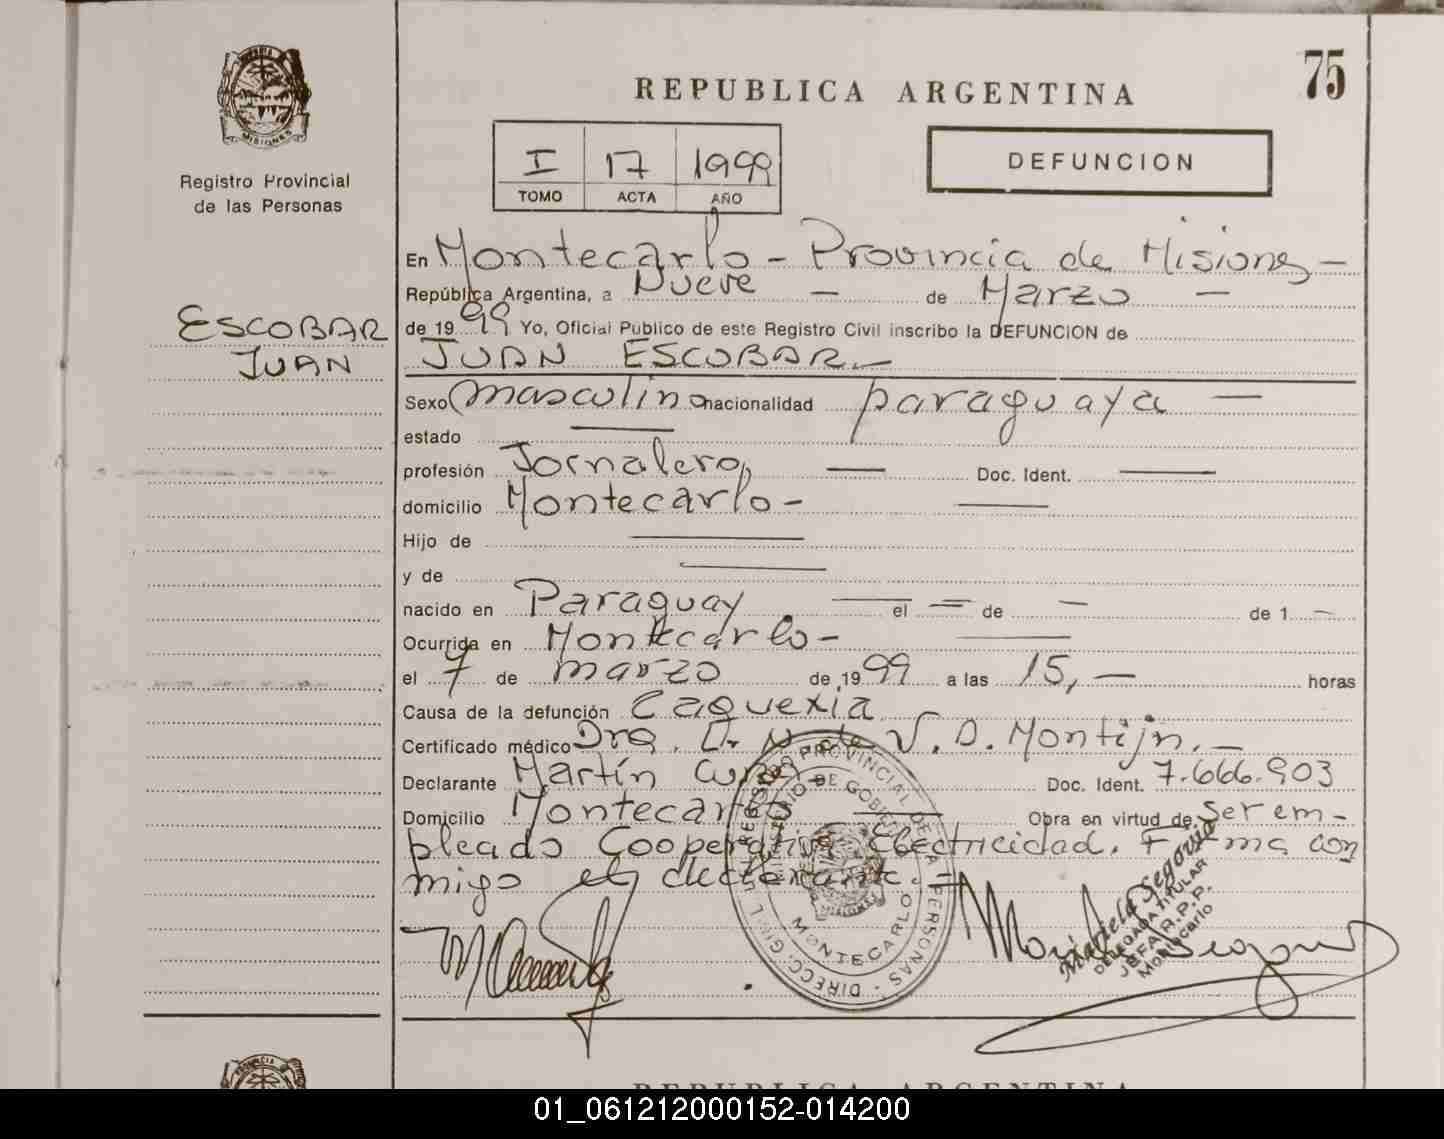 75
REPUBLICA ARGENTINA
DEFUNCION
I 17 1999
TOMO ACTA AÑO
MISIONES
Registro Provincial
de las Personas
ESCOBAR
JUAN
En Montecarlo - Provincia de Misiones -
República Argentina, a Nueve - de Marzo -
de 1999 Yo, Oficial Público de este Registro Civil inscribo la DEFUNCION de
JUAN ESCOBAR.-
Sexo masculino nacionalidad paraguaya -
estado -
profesión Jornalero, - Doc. Ident. -
domicilio Montecarlo - -
Hijo de -
y de -
nacido en Paraguay - el - de - de 1 -
Ocurrida en Montecarlo - -
el 7 de marzo de 1999 a las 15,- horas
Causa de la defunción Caquexia
Certificado médico Dra. V. D. Montijn.-
Declarante Martín Doc. Ident. 7.666.903
Domicilio Montecarlo - Obra en virtud de ser em-
pleado Cooperativa Electricidad. Firma con
migo el declarante.
REGISTRO PROVINCIAL DE LAS PERSONAS
MINISTERIO DE GOBIERNO
MONTECARLO
Mariela Segovia
DELEGADA TITULAR
JEFA R.P.P.
Montecarlo
REPUBLICA ARGENTINA
01_061212000152-014200